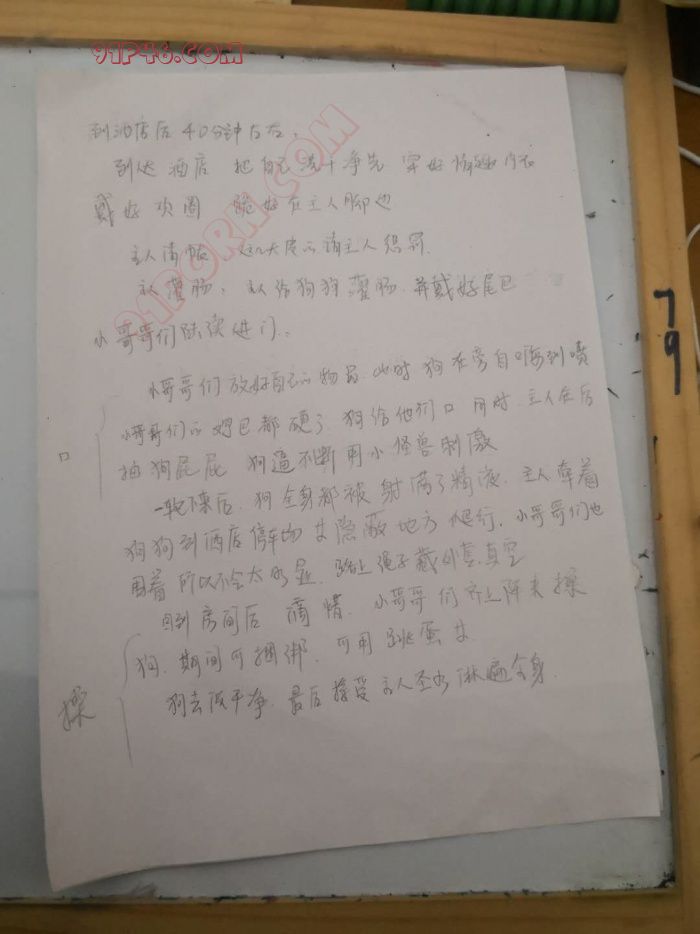 91P46.COM
91PORN.COM
到酒店后 40分钟左右,
到达酒店 把自己洗干净先 穿好情趣内衣
戴好项圈 跪好在主人脚边
主人清帐 这几天度 请主人惩罚.
主人灌肠, 主人给狗狗灌肠. 并戴好尾巴
小哥哥们陆续进门。
小哥哥们放好自己的物品. 此时 狗在旁自嗨到喷
小哥哥们的鸡巴都硬了 狗给他们口 同时. 主人在后
口
抽狗屁屁 狗逼不断用小怪兽刺激
一轮下来后. 狗全身都被射满了精液. 主人牵着
狗狗到酒店停车场 隐蔽地方 爬行. 小哥哥们也
围着 所以不会太明显. 绳子戴 外套 真空
回到房间后 滴惜. 小哥哥们齐上阵来操
狗. 期间可捆绑. 可用跳蛋
操
狗去洗干净. 最后接受主人圣水淋遍全身.
79